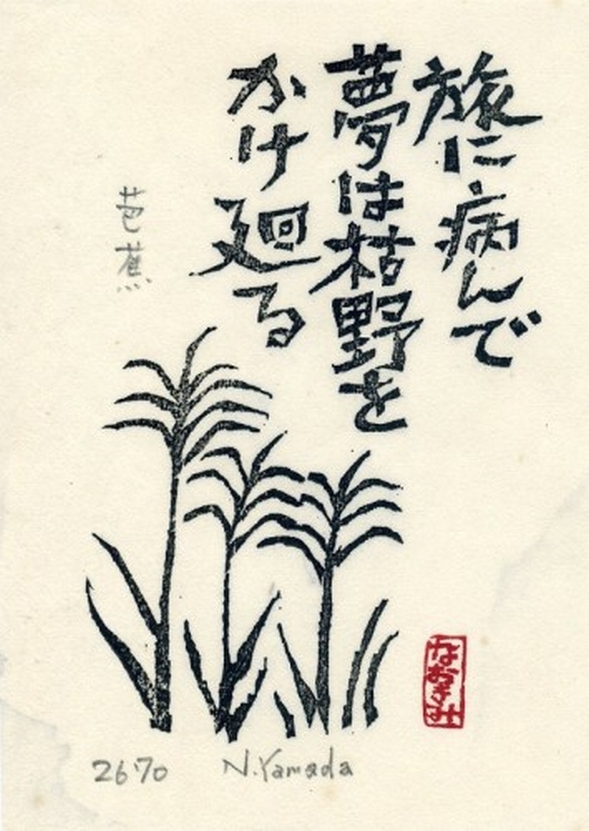 旅に病んで
夢は枯野を
かけ廻る
芭蕉
なおきみ
2670
N.Yamada